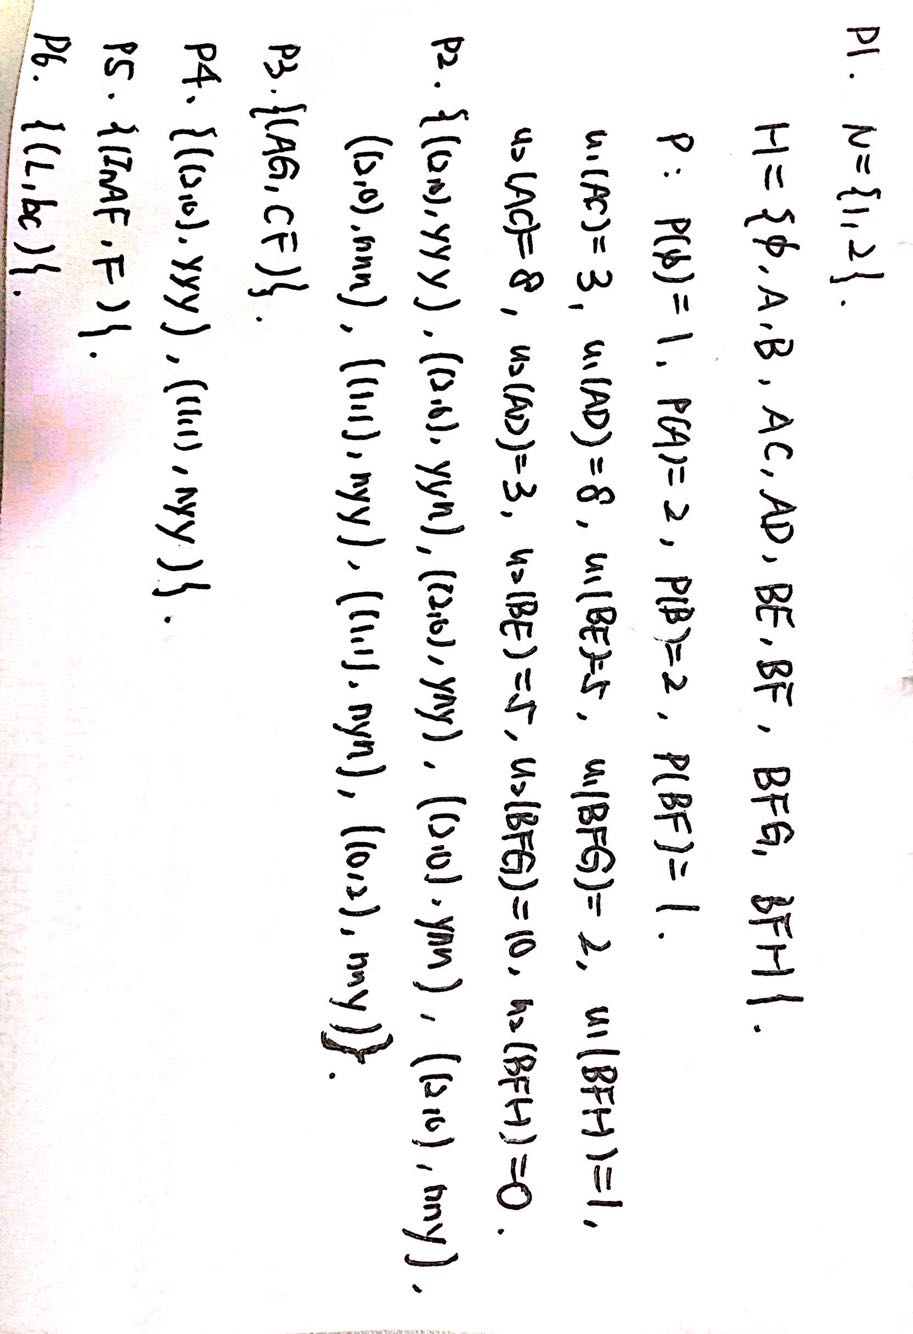 P1. N={1,2}.
H={ϕ, A, B, AC, AD, BE, BF, BFG, BFH}.
P: P(ϕ)=1, P(A)=2, P(B)=2, P(BF)=1.
u1(AC)=3, u1(AD)=8, u1(BE)=5, u1(BFG)=2, u1(BFH)=1,
u2(AC)=8, u2(AD)=3, u2(BE)=5, u2(BFG)=10, u2(BFH)=0.
P2. {((2,0),yyy), ((2,0),yyn), ((2,0),yny), ((2,0),ynn), ((2,0),nny),
((2,0),nnn), ((1,1),nyy), ((1,1),nyn), ((0,2),nny)}.
P3. {(AG,CF)}.
P4. {((2,0),yyy), ((1,1),nyy)}.
P5. {(InAF,F)}.
P6. {(L,bc)}.